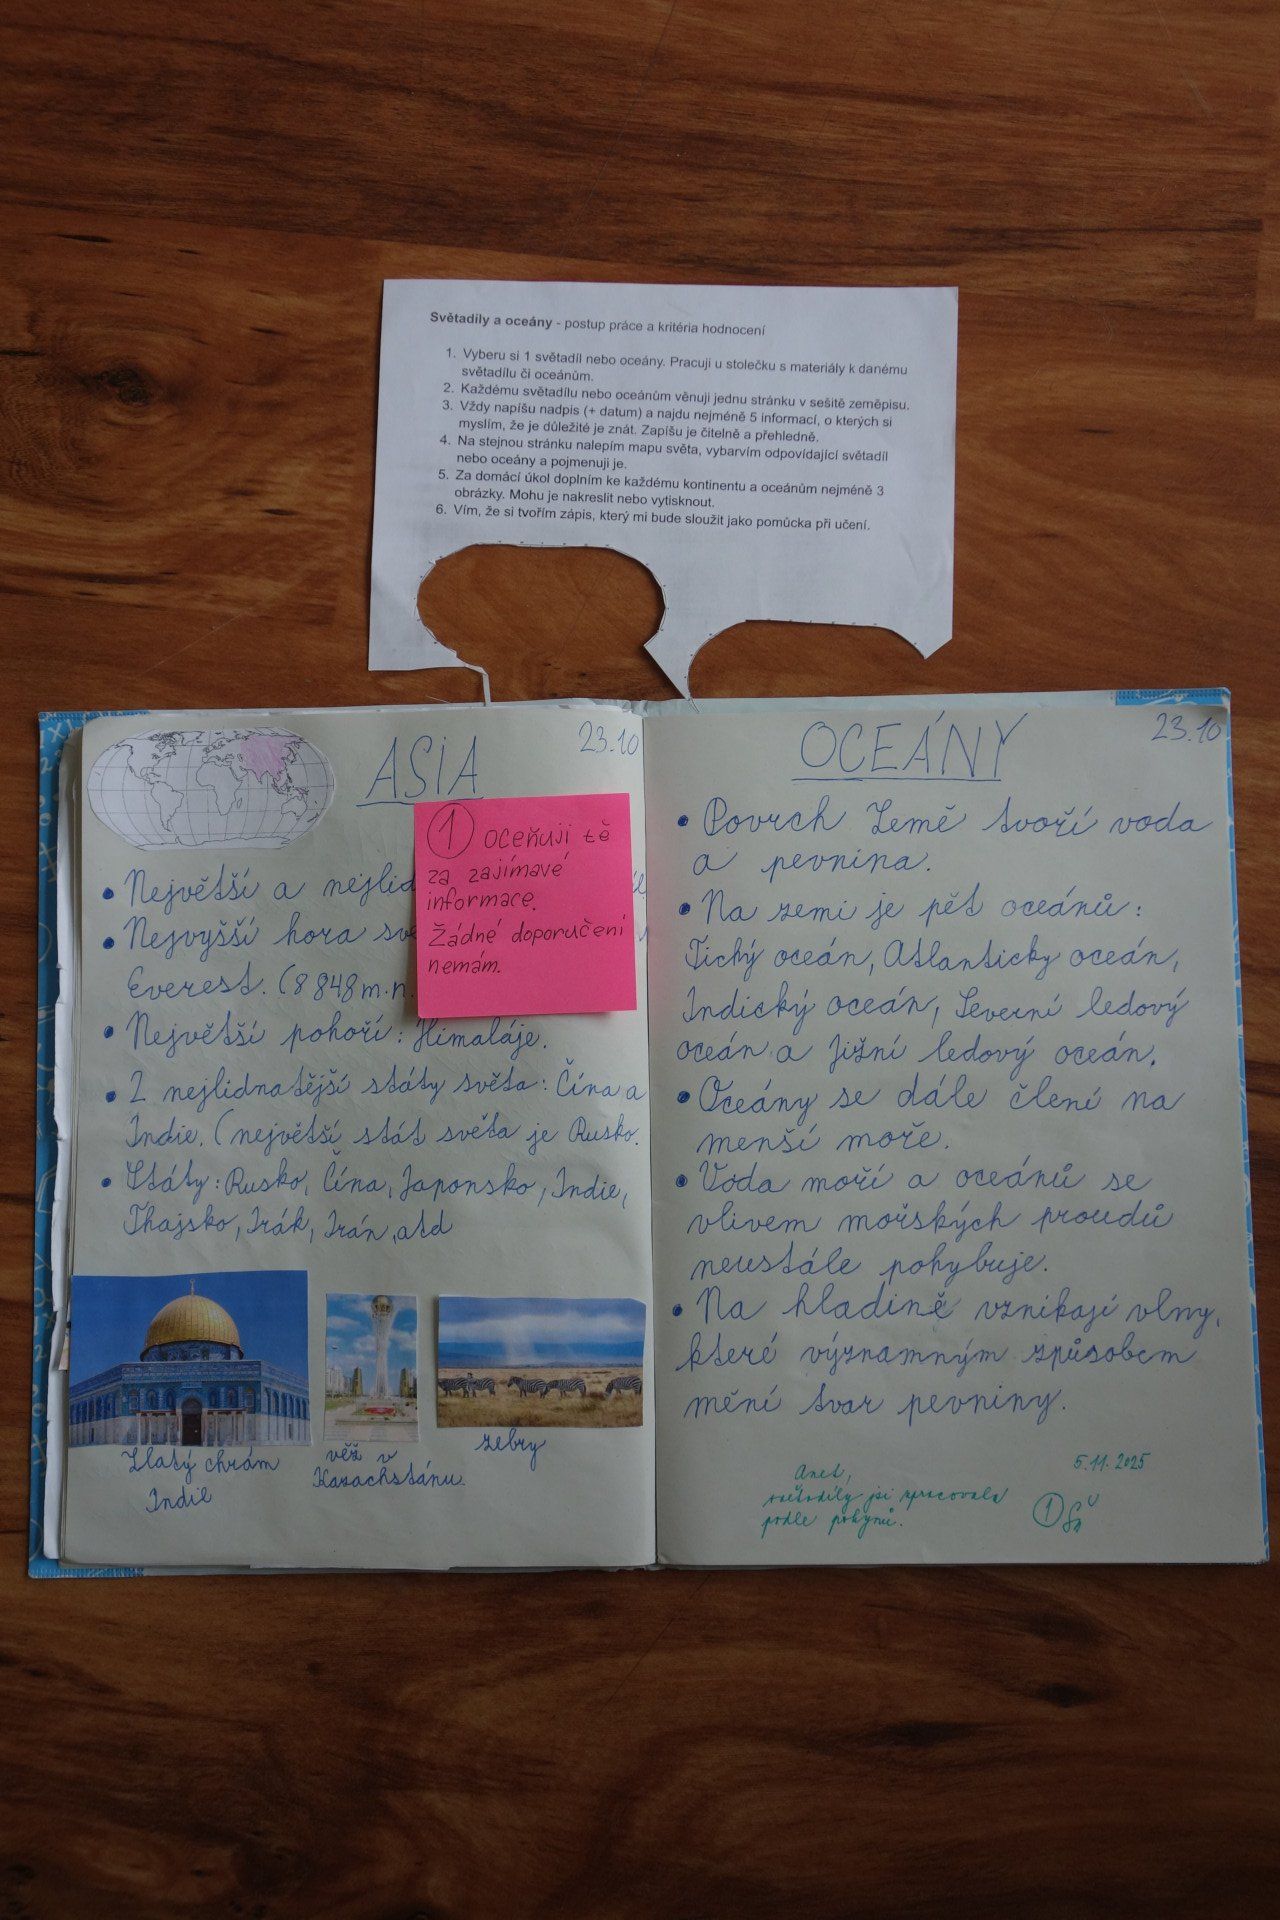 Světadíly a oceány - postup práce a kritéria hodnocení
1. Vyberu si 1 světadíl nebo oceány. Pracuji u stolečku s materiály k danému
světadílu či oceánům.
2. Každému světadílu nebo oceánům věnuji jednu stránku v sešitě zeměpisu.
3. Vždy napíšu nadpis (+ datum) a najdu nejméně 5 informací, o kterých si
myslím, že je důležité je znát. Zapíšu je čitelně a přehledně.
4. Na stejnou stránku nalepím mapu světa, vybarvím odpovídající světadíl
nebo oceány a pojmenuji je.
5. Za domácí úkol doplním ke každému kontinentu a oceánům nejméně 3
obrázky. Mohu je nakreslit nebo vytisknout.
6. Vím, že si tvořím zápis, který mi bude sloužit jako pomůcka při učení.
ASIA
23.10
• Největší a nejlid
• Nejvyšší hora sv
Everest. (8 848 m.n.
• Největší pohoří: Himaláje.
• 2 nejlidnatější státy světa: Čína a
Indie. (největší stát světa je Rusko.
• Státy: Rusko, Čína, Japonsko, Indie,
Thajsko, Irák, Irán, atd
1 oceňuji tě
za zajímavé
informace.
Žádné doporučení
nemám.
Zlatý chrám
Indie
věž v
Kazachstánu.
zebry
OCEÁNY
23.10
• Povrch Země tvoří voda
a pevnina.
• Na zemi je pět oceánů:
Tichý oceán, Atlanticky oceán,
Indický oceán, Severní ledový
oceán a Jižní ledový oceán.
• Oceány se dále člení na
menší moře.
• Voda moří a oceánů se
vlivem mořských proudů
neustále pohybuje.
• Na hladině vznikají vlny,
které významným způsobem
mění tvar pevniny.
5.11.2025
Anet,
světadíly jsi zpracovala
podle pokynů.
1